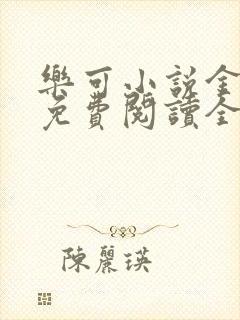 樂可小說全
免費閱讀全
陳麗瑛